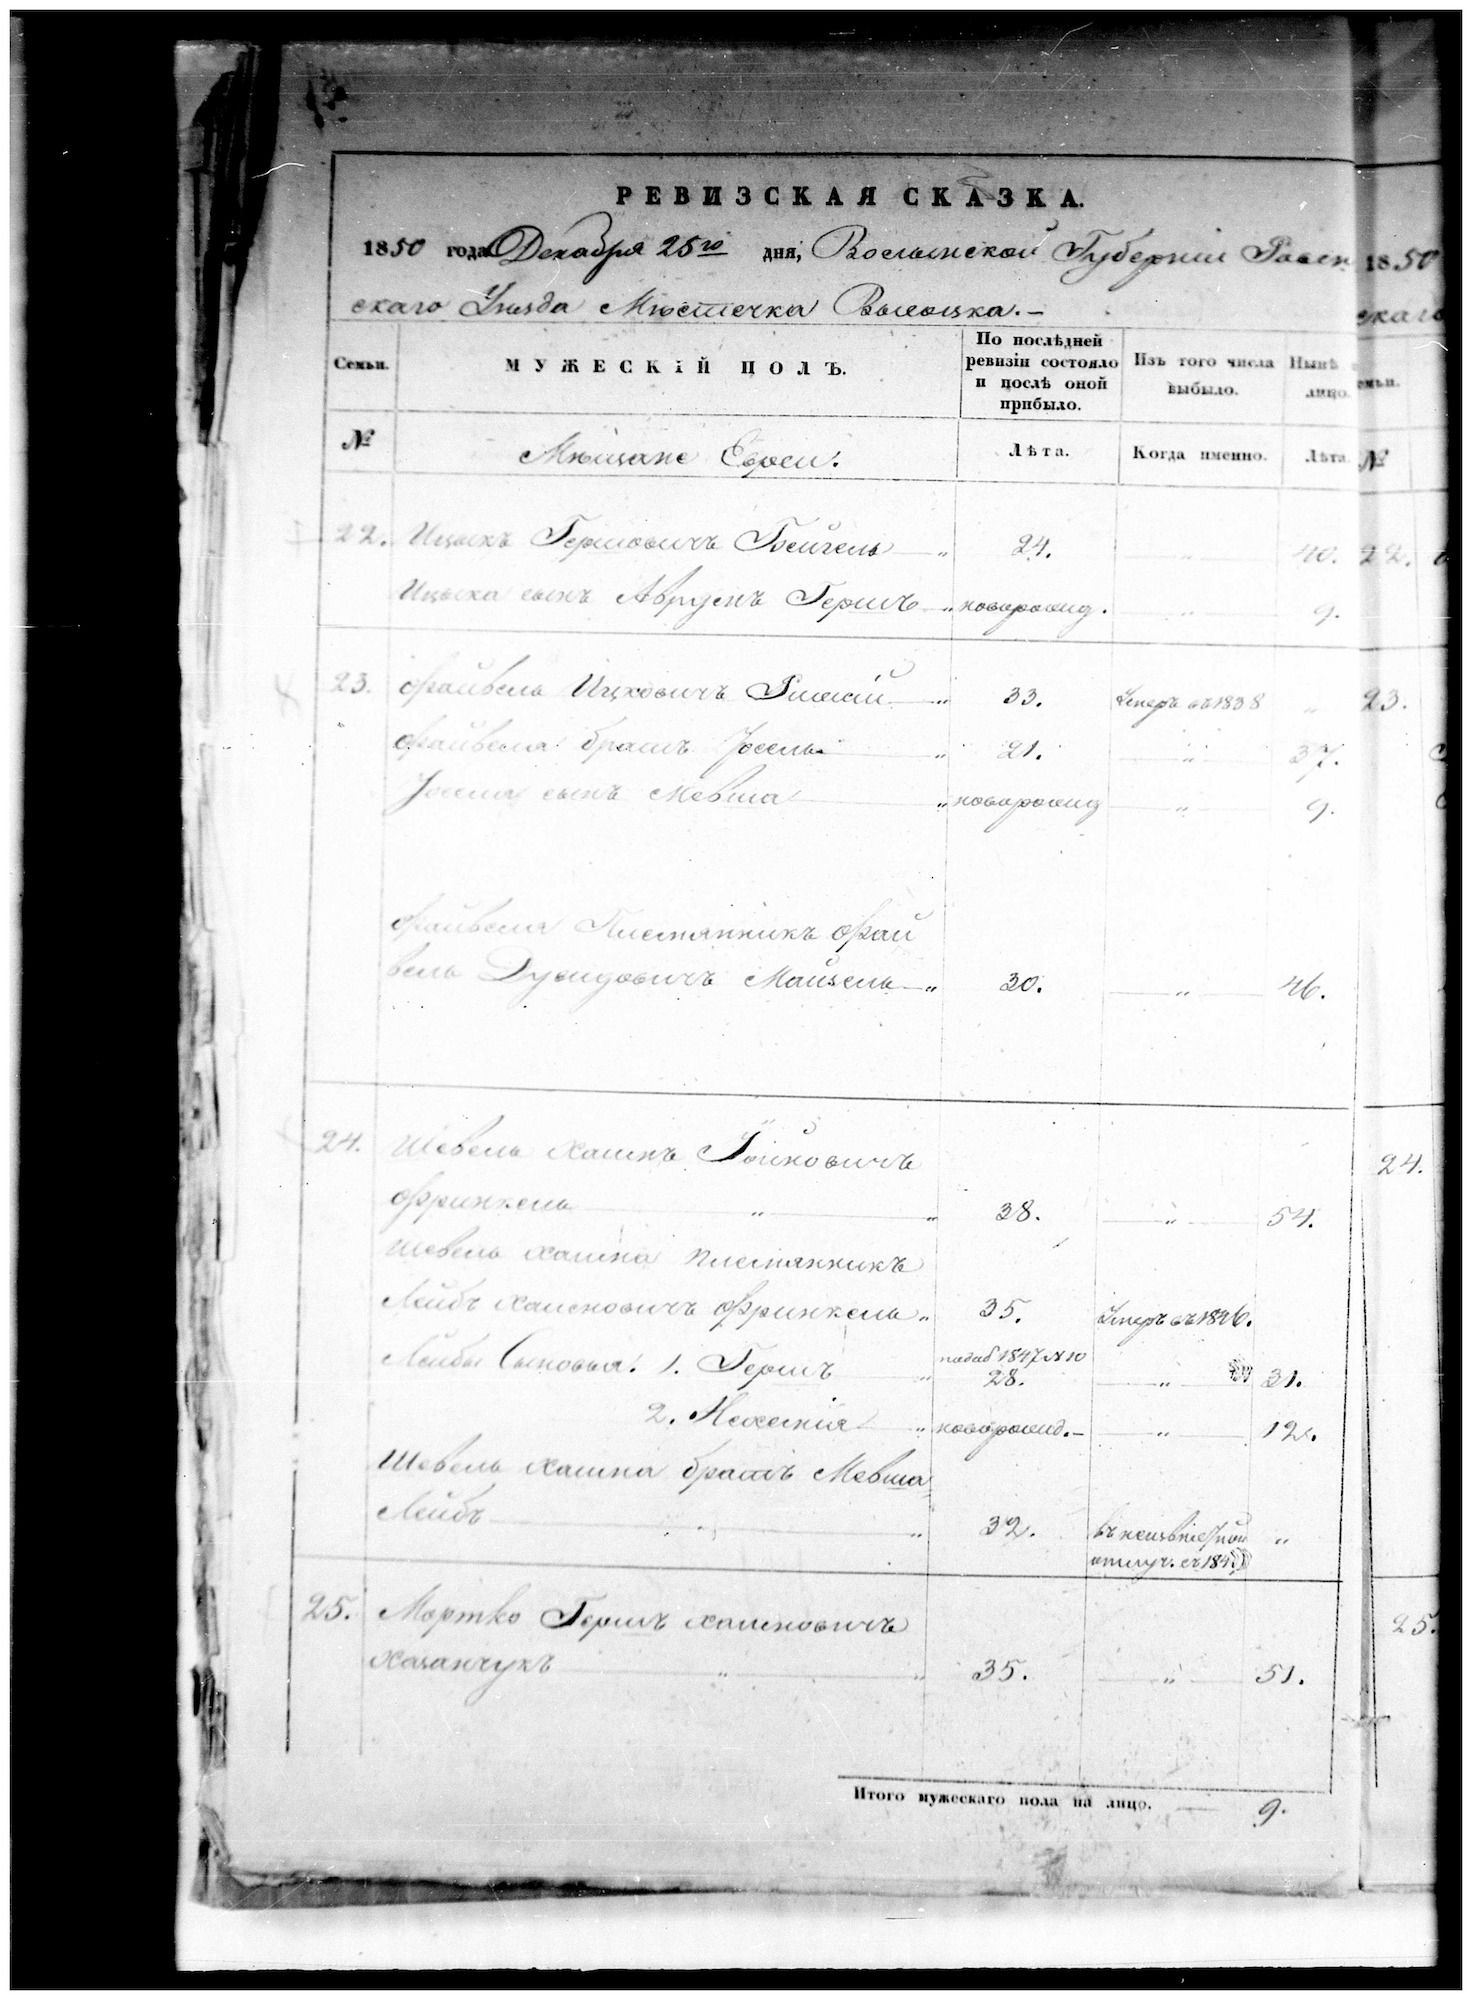 РЕВИЗСКАЯ СКАЗКА.
1850 года Декабря 25го дня, Волынской Губерніи Ровен
скаго Уезда Мѣстечка Высоцка.–
Семьи. МУЖЕСКІЙ ПОЛЪ. По послѣдней ревизіи состояло и послѣ оной прибыло. Изъ того числа выбыло. Нынѣ лицо.
№ Мѣщане Евреи. Лѣта. Когда именно. Лѣта.
22. Ицыкъ Гершовичъ Бейгель „ 24. „ 40.
Ицыка сынъ Аврумъ Гершъ „ новорожд. „ 9.
23. Файвель Ицковичъ „ 33. Умеръ въ 1838 „
Файвеля братъ Іосель „ 21. „ 37.
Іоселя сынъ Мевша „ новорожд „ 9.
Файвеля Племянникъ Фай
вель Дувидовичъ Майзель „ 30. „ 46.
24. Шевель Хаимъ Іойновичъ
Фринкель „ „ 38. „ 54.
Шевель Хаима племянникъ
Лейбъ Хаимовичъ Фринкель „ 35. Умеръ въ 1846.
Лейбы Сыновья: 1. Гершъ „ 1847 № 10
28. „ 31.
2. Нехемія „ новорожд. – „ 12.
Шевель Хаима братъ Мевша
Лейбъ „ „ 32. въ неизвѣстной „
отлуч. съ 184
25. Мортко Гершъ Хаимовичъ
Хазанчукъ „ „ 35. „ 51.
Итого мужескаго пола на лицо. 9.
1850
скаго
№
22.
23.
24.
25.